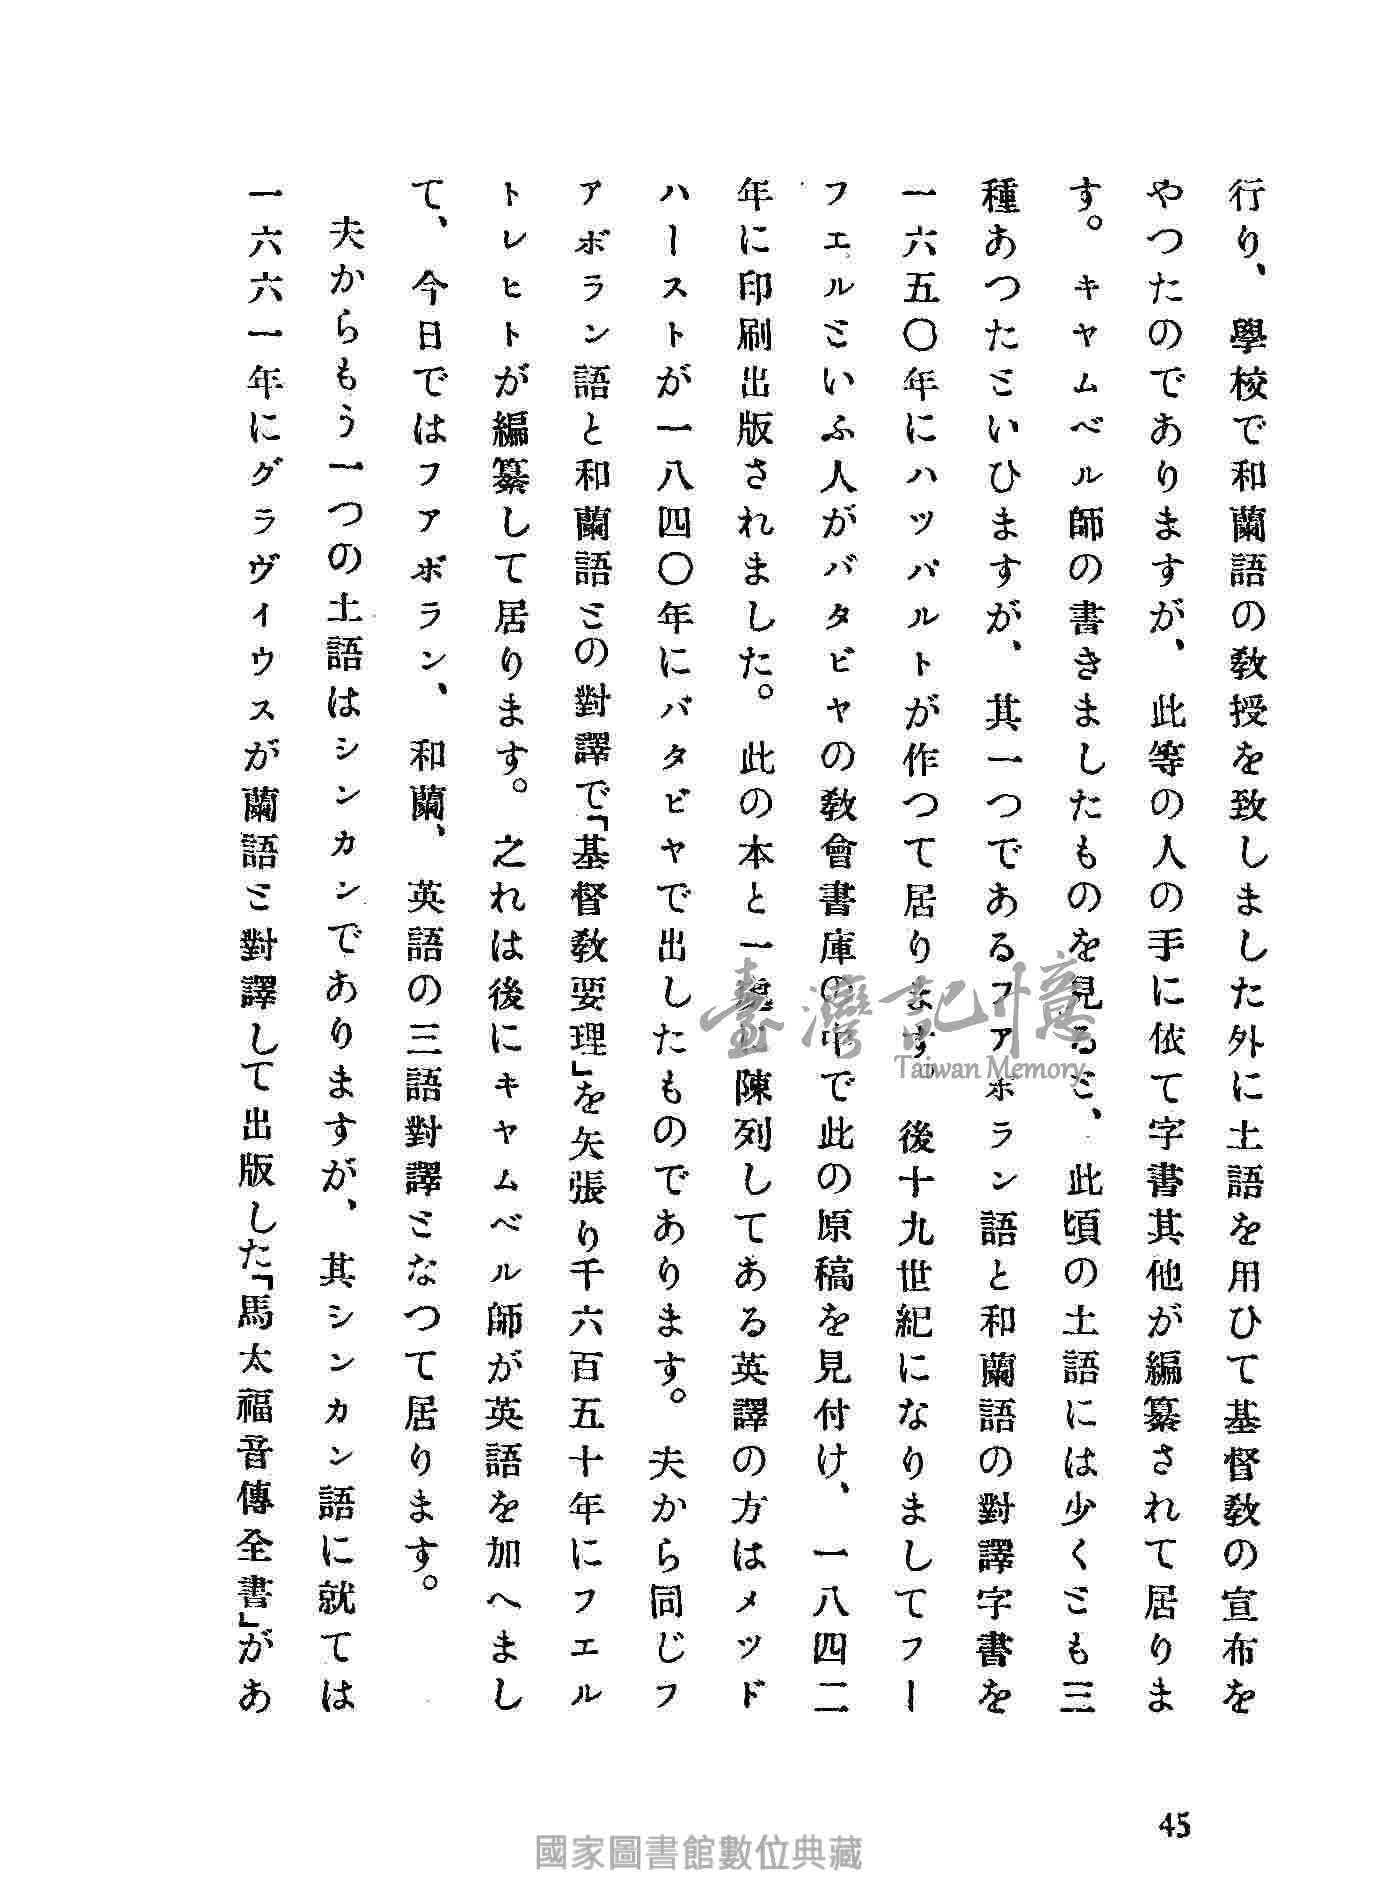 行り、學校で和蘭語の教授を致しました外に土語を用ひて基督教の宣布を
やつたのでありますが、此等の人の手に依て字書其他が編纂されて居りま
す。キャムベル師の書きましたものを見るミ、此頃の土語には少くミも三
種あつたミいひますが、其一つであるファボラン語と和蘭語の對譯字書を
一六五〇年にハッパルトが作つて居ります。後十九世紀になりましてフー
フェルミいふ人がバタビヤの教會書庫の中で此の原稿を見付け、一八四二
年に印刷出版されました。此の本と一處に陳列してある英譯の方はメッド
ハーストが一八四〇年にバタビヤで出したものであります。夫から同じフ
アボラン語と和蘭語ミの對譯で「基督教要理」を矢張り千六百五十年にフエル
トレヒトが編纂して居ります。之れは後にキャムベル師が英語を加へまし
て、今日ではファボラン、和蘭、英語の三語對譯ミなつて居ります。
夫からもう一つの土語はシンカンでありますが、其シンカン語に就ては
一六六一年にグラヴイウスが蘭語ミ對譯して出版した「馬太福音傳全書」があ
45
臺灣記憶
Taiwan Memory
國家圖書館數位典藏